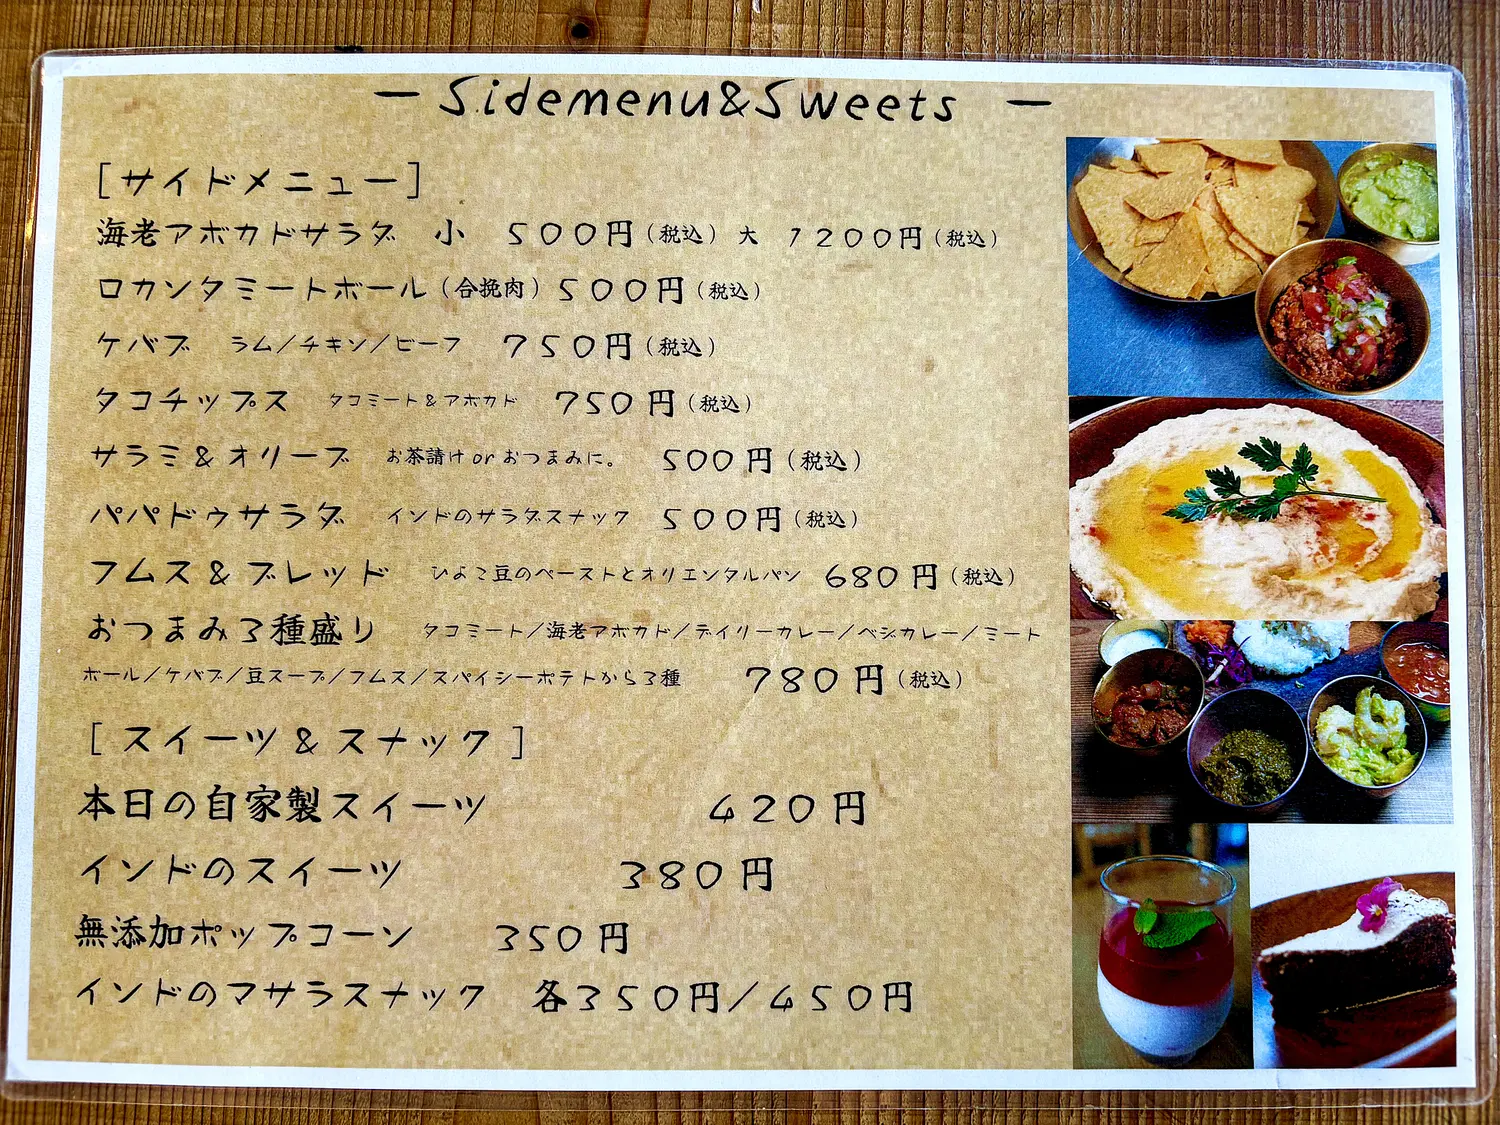 ー Sidemenu&Sweets ー
［サイドメニュー］
海老アボカドサラダ 小 ５００円（税込） 大 １２００円（税込）
ロカンタミートボール（合挽肉）５００円（税込）
ケバブ ラム／チキン／ビーフ ７５０円（税込）
タコチップス タコミート＆アボカド ７５０円（税込）
サラミ＆オリーブ お茶請け or おつまみに。 ５００円（税込）
パパドゥサラダ インドのサラダスナック ５００円（税込）
フムス＆ブレッド ひよこ豆のペーストとオリエンタルパン ６８０円（税込）
おつまみ３種盛り タコミート／海老アボカド／デイリーカレー／ベジカレー／ミート
ボール／ケバブ／豆スープ／フムス／スパイシーポテトから３種 ７８０円（税込）
［ スイーツ＆スナック ］
本日の自家製スイーツ ４２０円
インドのスイーツ ３８０円
無添加ポップコーン ３５０円
インドのマサラスナック 各３５０円／４５０円